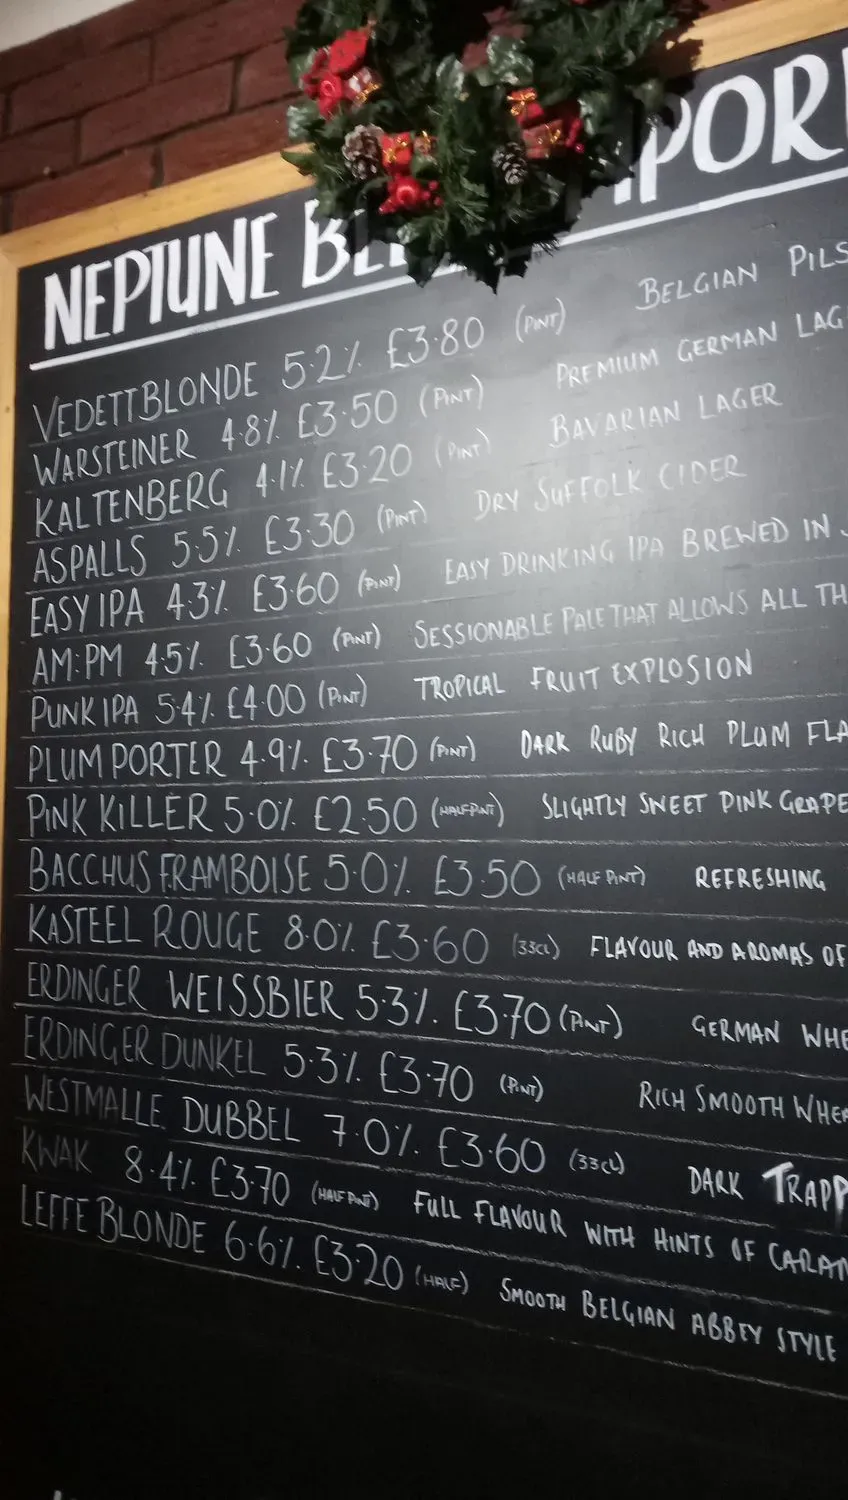 NEPTUNE BE
VEDETT BLONDE 5.2% £3.80 (PINT) BELGIAN PILS
WARSTEINER 4.8% £3.50 (PINT) PREMIUM GERMAN LAG
KALTENBERG 4.1% £3.20 (PINT) BAVARIAN LAGER
ASPALLS 5.5% £3.30 (PINT) DRY SUFFOLK CIDER
EASY IPA 4.3% £3.60 (PINT) EASY DRINKING IPA BREWED IN
AM:PM 4.5% £3.60 (PINT) SESSIONABLE PALE THAT ALLOWS ALL TH
PUNK IPA 5.4% £4.00 (PINT) TROPICAL FRUIT EXPLOSION
PLUM PORTER 4.9% £3.70 (PINT) DARK RUBY RICH PLUM FLA
PINK KILLER 5.0% £2.50 (HALF PINT) SLIGHTLY SWEET PINK GRAPE
BACCHUS FRAMBOISE 5.0% £3.50 (HALF PINT) REFRESHING
KASTEEL ROUGE 8.0% £3.60 (33CL) FLAVOUR AND AROMAS OF
ERDINGER WEISSBIER 5.3% £3.70 (PINT) GERMAN WHE
ERDINGER DUNKEL 5.3% £3.70 (PINT) RICH SMOOTH WHEA
WESTMALLE DUBBEL 7.0% £3.60 (33CL) DARK TRAPP
KWAK 8.4% £3.70 (HALF PINT) FULL FLAVOUR WITH HINTS OF CARAM
LEFFE BLONDE 6.6% £3.20 (HALF) SMOOTH BELGIAN ABBEY STYLE